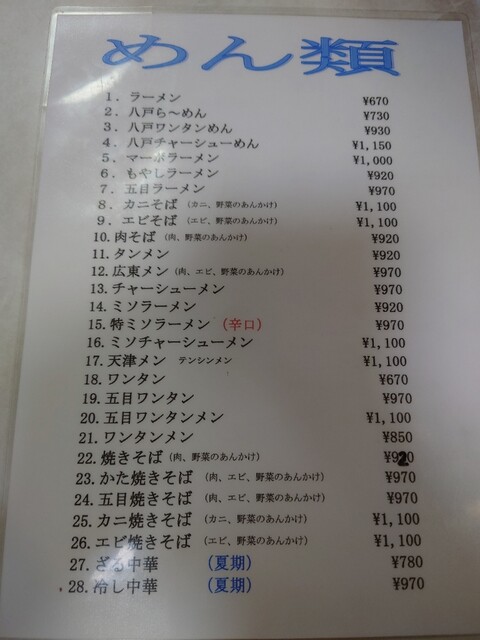 めん類
1. ラーメン ¥670
2. 八戸ら〜めん ¥730
3. 八戸ワンタンめん ¥930
4. 八戸チャーシューめん ¥1,150
5. マーボラーメン ¥1,000
6. もやしラーメン ¥920
7. 五目ラーメン ¥970
8. カニそば (カニ、野菜のあんかけ) ¥1,100
9. エビそば (エビ、野菜のあんかけ) ¥1,100
10. 肉そば (肉、野菜のあんかけ) ¥920
11. タンメン ¥920
12. 広東メン (肉、エビ、野菜のあんかけ) ¥970
13. チャーシューメン ¥970
14. ミソラーメン ¥920
15. 特ミソラーメン (辛口) ¥970
16. ミソチャーシューメン ¥1,100
17. 天津メン テンシンメン ¥1,100
18. ワンタン ¥670
19. 五目ワンタン ¥970
20. 五目ワンタンメン ¥1,100
21. ワンタンメン ¥850
22. 焼きそば (肉、野菜のあんかけ) ¥920
23. かた焼きそば (肉、エビ、野菜のあんかけ) ¥970
24. 五目焼きそば (肉、エビ、野菜のあんかけ) ¥970
25. カニ焼きそば (カニ、野菜のあんかけ) ¥1,100
26. エビ焼きそば (エビ、野菜のあんかけ) ¥1,100
27. ざる中華 (夏期) ¥780
28. 冷し中華 (夏期) ¥970